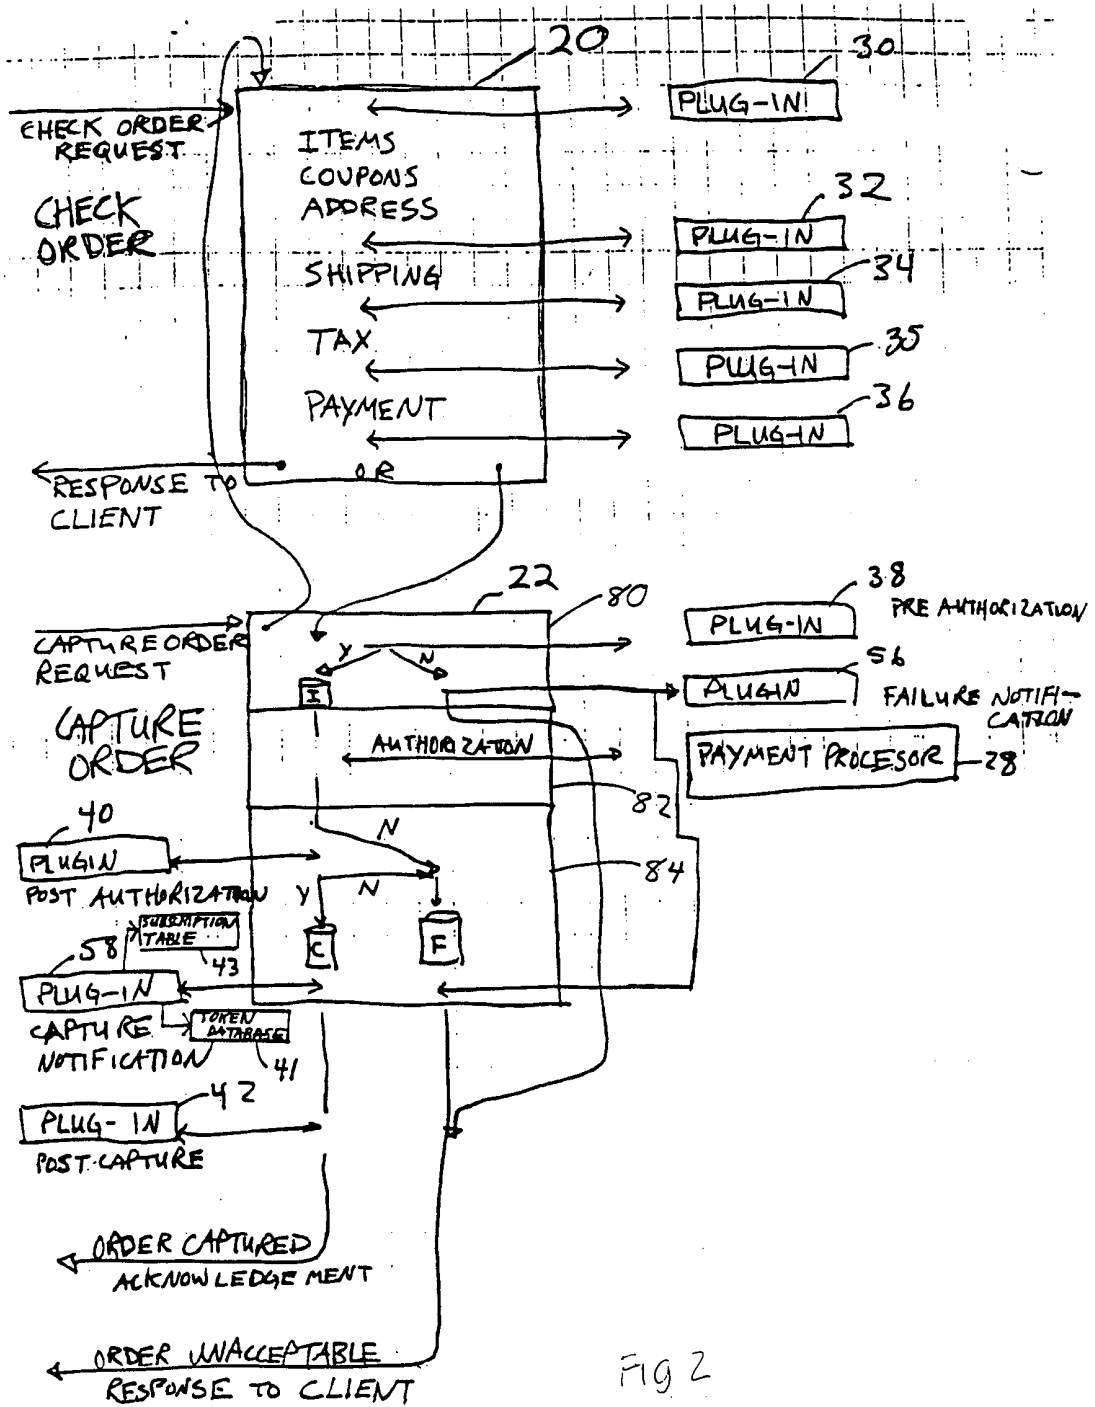 20
30
PLUG-IN
CHECK ORDER
REQUEST
ITEMS
COUPONS
ADDRESS
CHECK
ORDER
32
PLUG-IN
SHIPPING
34
PLUG-IN
TAX
35
PLUG-IN
PAYMENT
36
PLUG-IN
OR
RESPONSE TO
CLIENT
22
80
38
PLUG-IN
PRE AUTHORIZATION
CAPTURE ORDER
REQUEST
Y
N
I
56
PLUGIN
FAILURE NOTIFI-
CATION
CAPTURE
ORDER
AUTHORIZATION
PAYMENT PROCESOR
28
82
40
PLUGIN
POST AUTHORIZATION
N
84
Y
N
C
F
SUBSCRIPTION
TABLE
43
58
PLUG-IN
CAPTURE
NOTIFICATION
TOKEN
DATABASE
41
42
PLUG-IN
POST-CAPTURE
ORDER CAPTURED
ACKNOWLEDGEMENT
ORDER UNACCEPTABLE
RESPONSE TO CLIENT
Fig 2